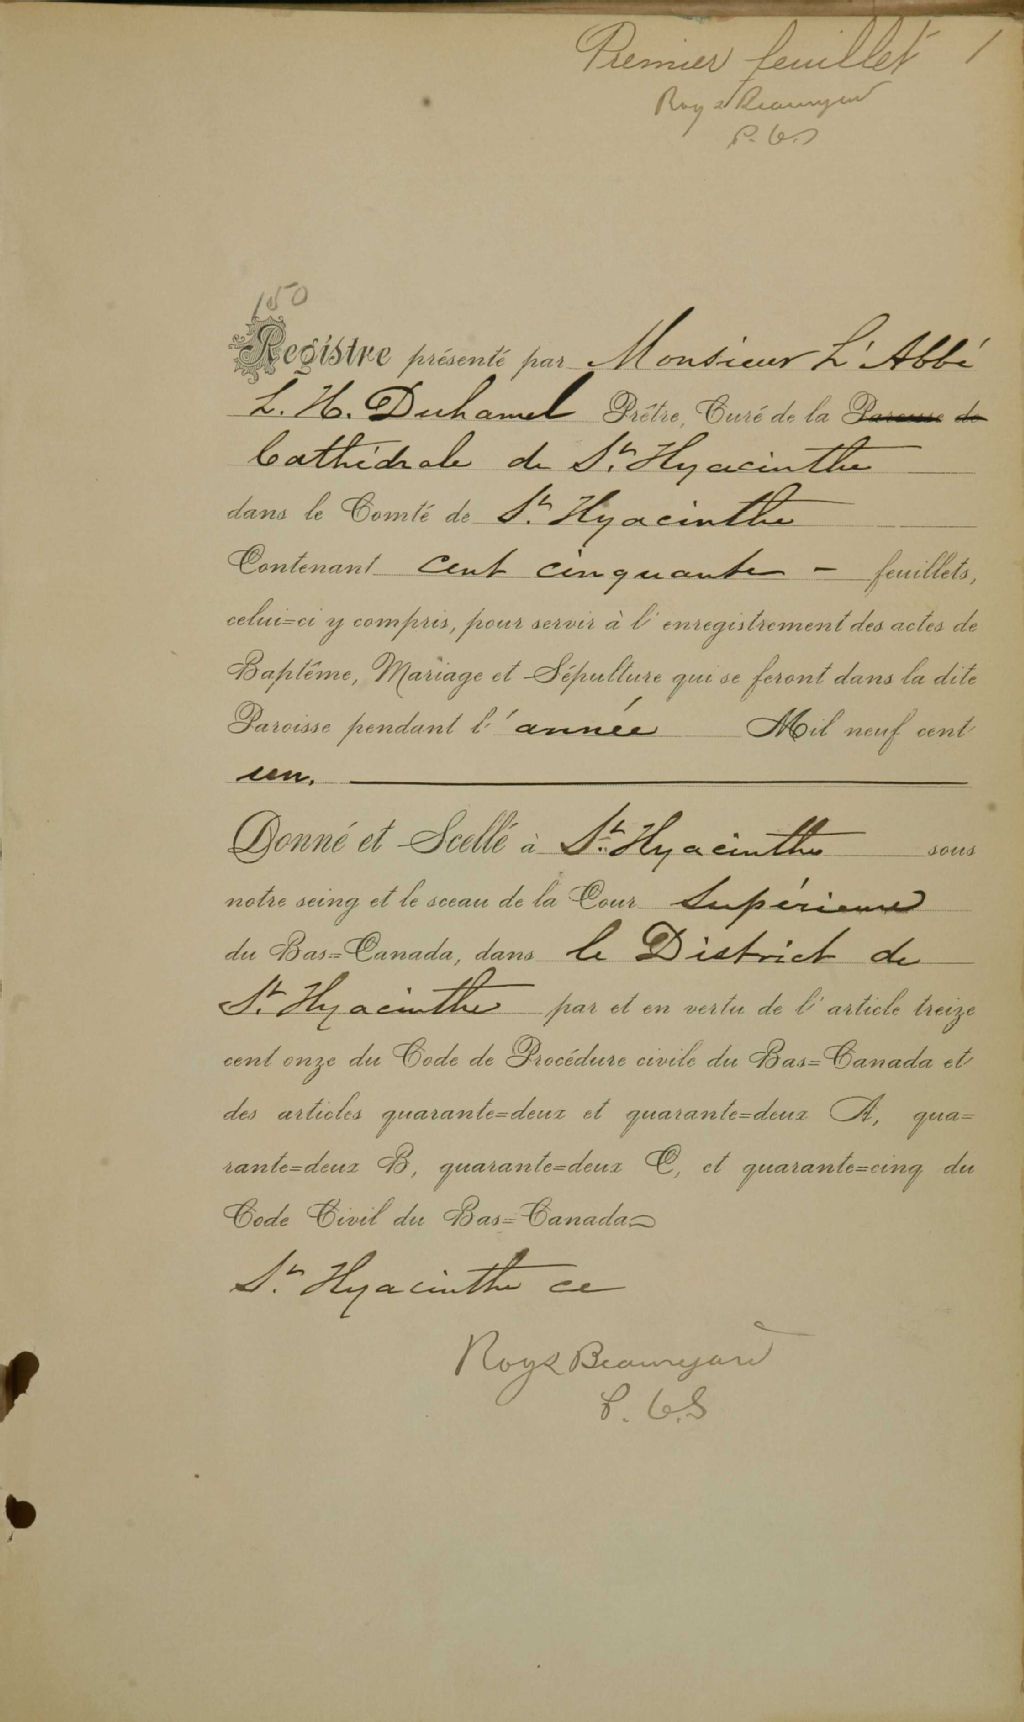 Premier feuillet 1
Roy & Beauregard
P. C. S
150
Registre présenté par Monsieur L'Abbé
L. H. Duhamel Prêtre, Curé de la Paroisse de
Cathédrale de St. Hyacinthe
dans le Comté de St. Hyacinthe
Contenant cent cinquante - feuillets,
celui=ci y compris, pour servir à l'enregistrement des actes de
Baptême, Mariage et Sépulture qui se feront dans la dite
Paroisse pendant l'année Mil neuf cent
un.
Donné et Scellé à St. Hyacinthe sous
notre seing et le sceau de la Cour Supérieure
du Bas=Canada, dans le District de
St. Hyacinthe par et en vertu de l'article treize
cent onze du Code de Procédure civile du Bas=Canada et
des articles quarante=deux et quarante=deux A, qua=
rante=deux B, quarante=deux C, et quarante=cinq du
Code Civil du Bas=Canada
St. Hyacinthe ce
Roy & Beauregard
P. C. S